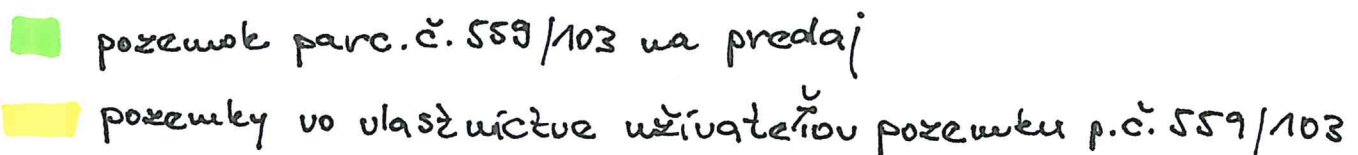 pozemok parc. č. 559/103 na predaj
pozemky vo vlastníctve užívateľov pozemku p.č. 559/103